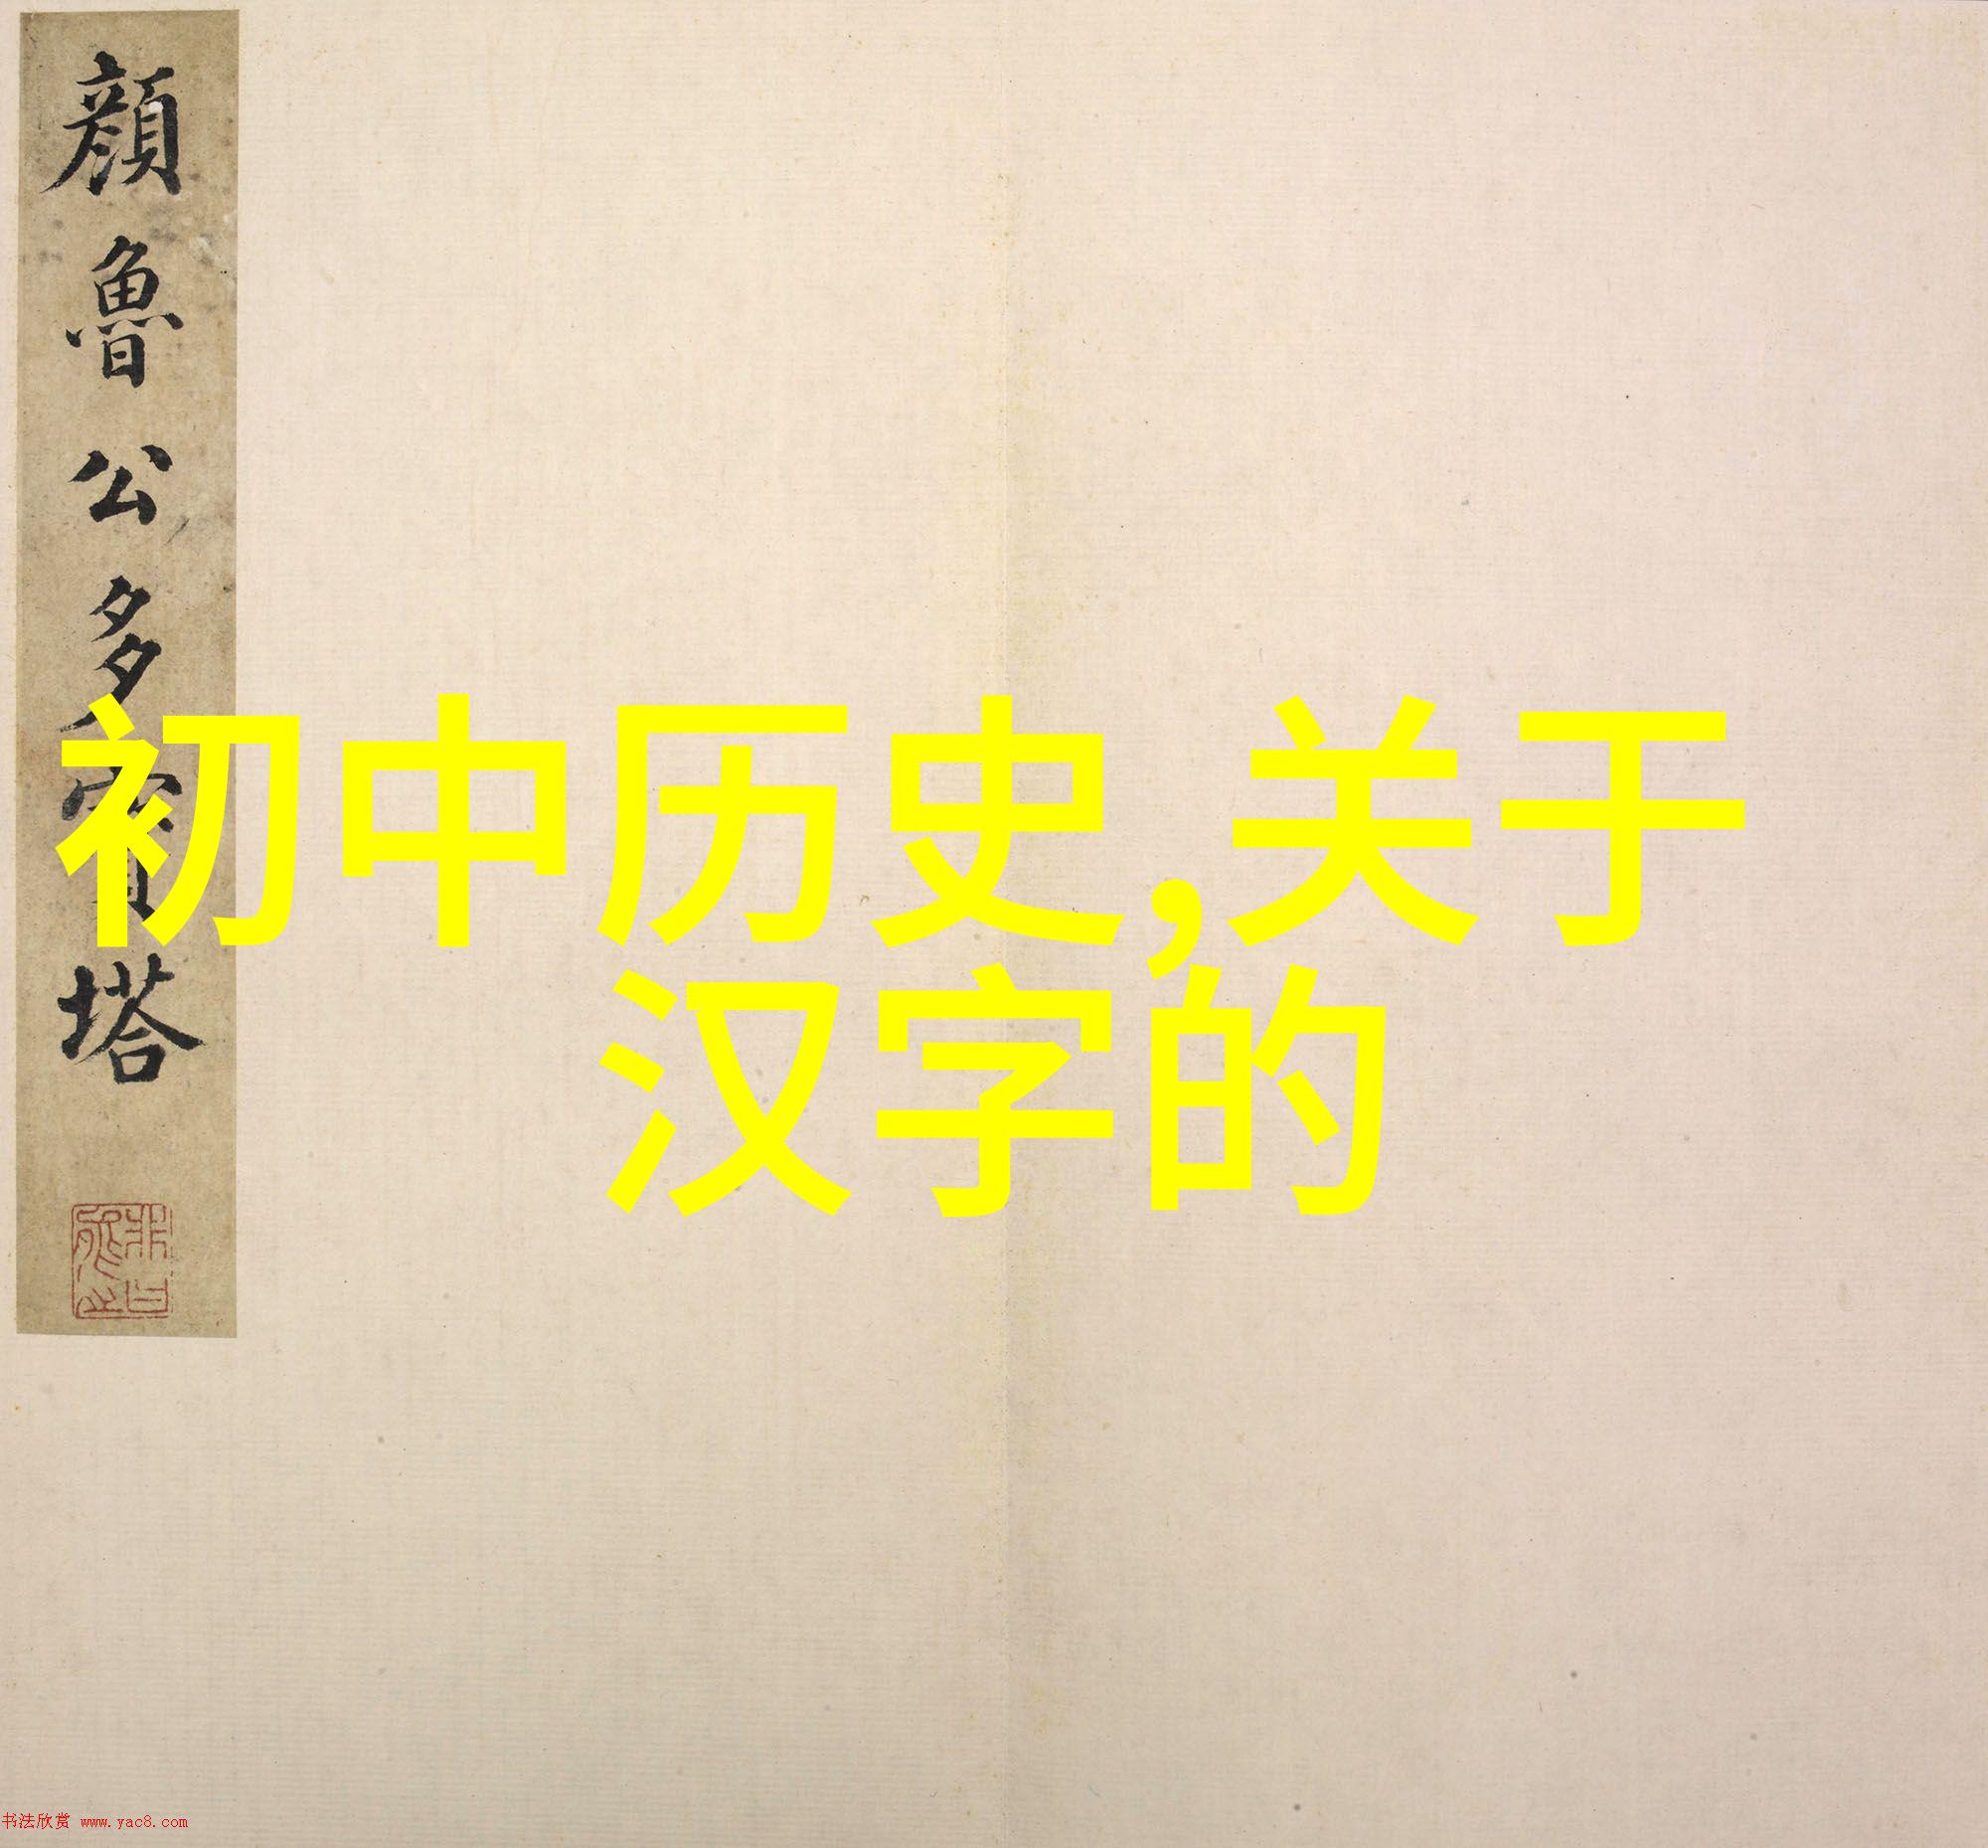 顔魯公多寳塔
初中历史,关于
汉字的
书法欣赏 www.yac8.com